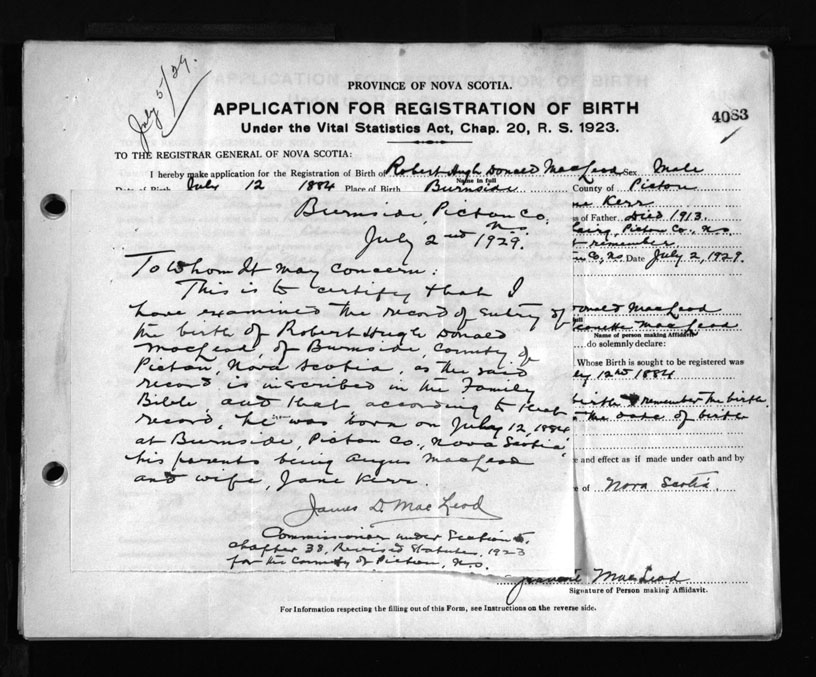 July 5/29.
PROVINCE OF NOVA SCOTIA.
APPLICATION FOR REGISTRATION OF BIRTH
Under the Vital Statistics Act, Chap. 20, R. S. 1923.
4083
TO THE REGISTRAR GENERAL OF NOVA SCOTIA:
I hereby make application for the Registration of Birth of Robert Hugh Donald MacLeod Sex Male
Name in full
Date of Birth July 12 1884 Place of Birth Burnside County of Pictou
Kerr
of Father Died 1913.
Pictou Co., N.S.
remember
Co, N.S. Date July 2, 1929.
Burnside, Pictou Co.
N.S.
July 2nd 1929.
To Whom It May Concern:
This is to certify that I
have examined the record of entry of
the birth of Robert Hugh Donald
MacLeod, of Burnside, County of
Pictou, Nova Scotia, as the said
record is inscribed in the Family
Bible, and that according to that
record, he was born on July 12, 1884
at Burnside, Pictou Co., Nova Scotia,
his parents being Angus MacLeod
and wife, Jane Kerr.
James D. MacLeod
Commissioner under Section 5,
Chapter 38, Revised Statutes, 1923
for the County of Pictou, N.S.
Donald MacLeod
MacLeod
Name of person making Affidavit
do solemnly declare:
Whose Birth is sought to be registered was
12nd 1884
birth remember the birth
the date of birth
and effect as if made under oath and by
of Nova Scotia.
MacLeod
Signature of Person making Affidavit.
For Information respecting the filling out of this Form, see Instructions on the reverse side.